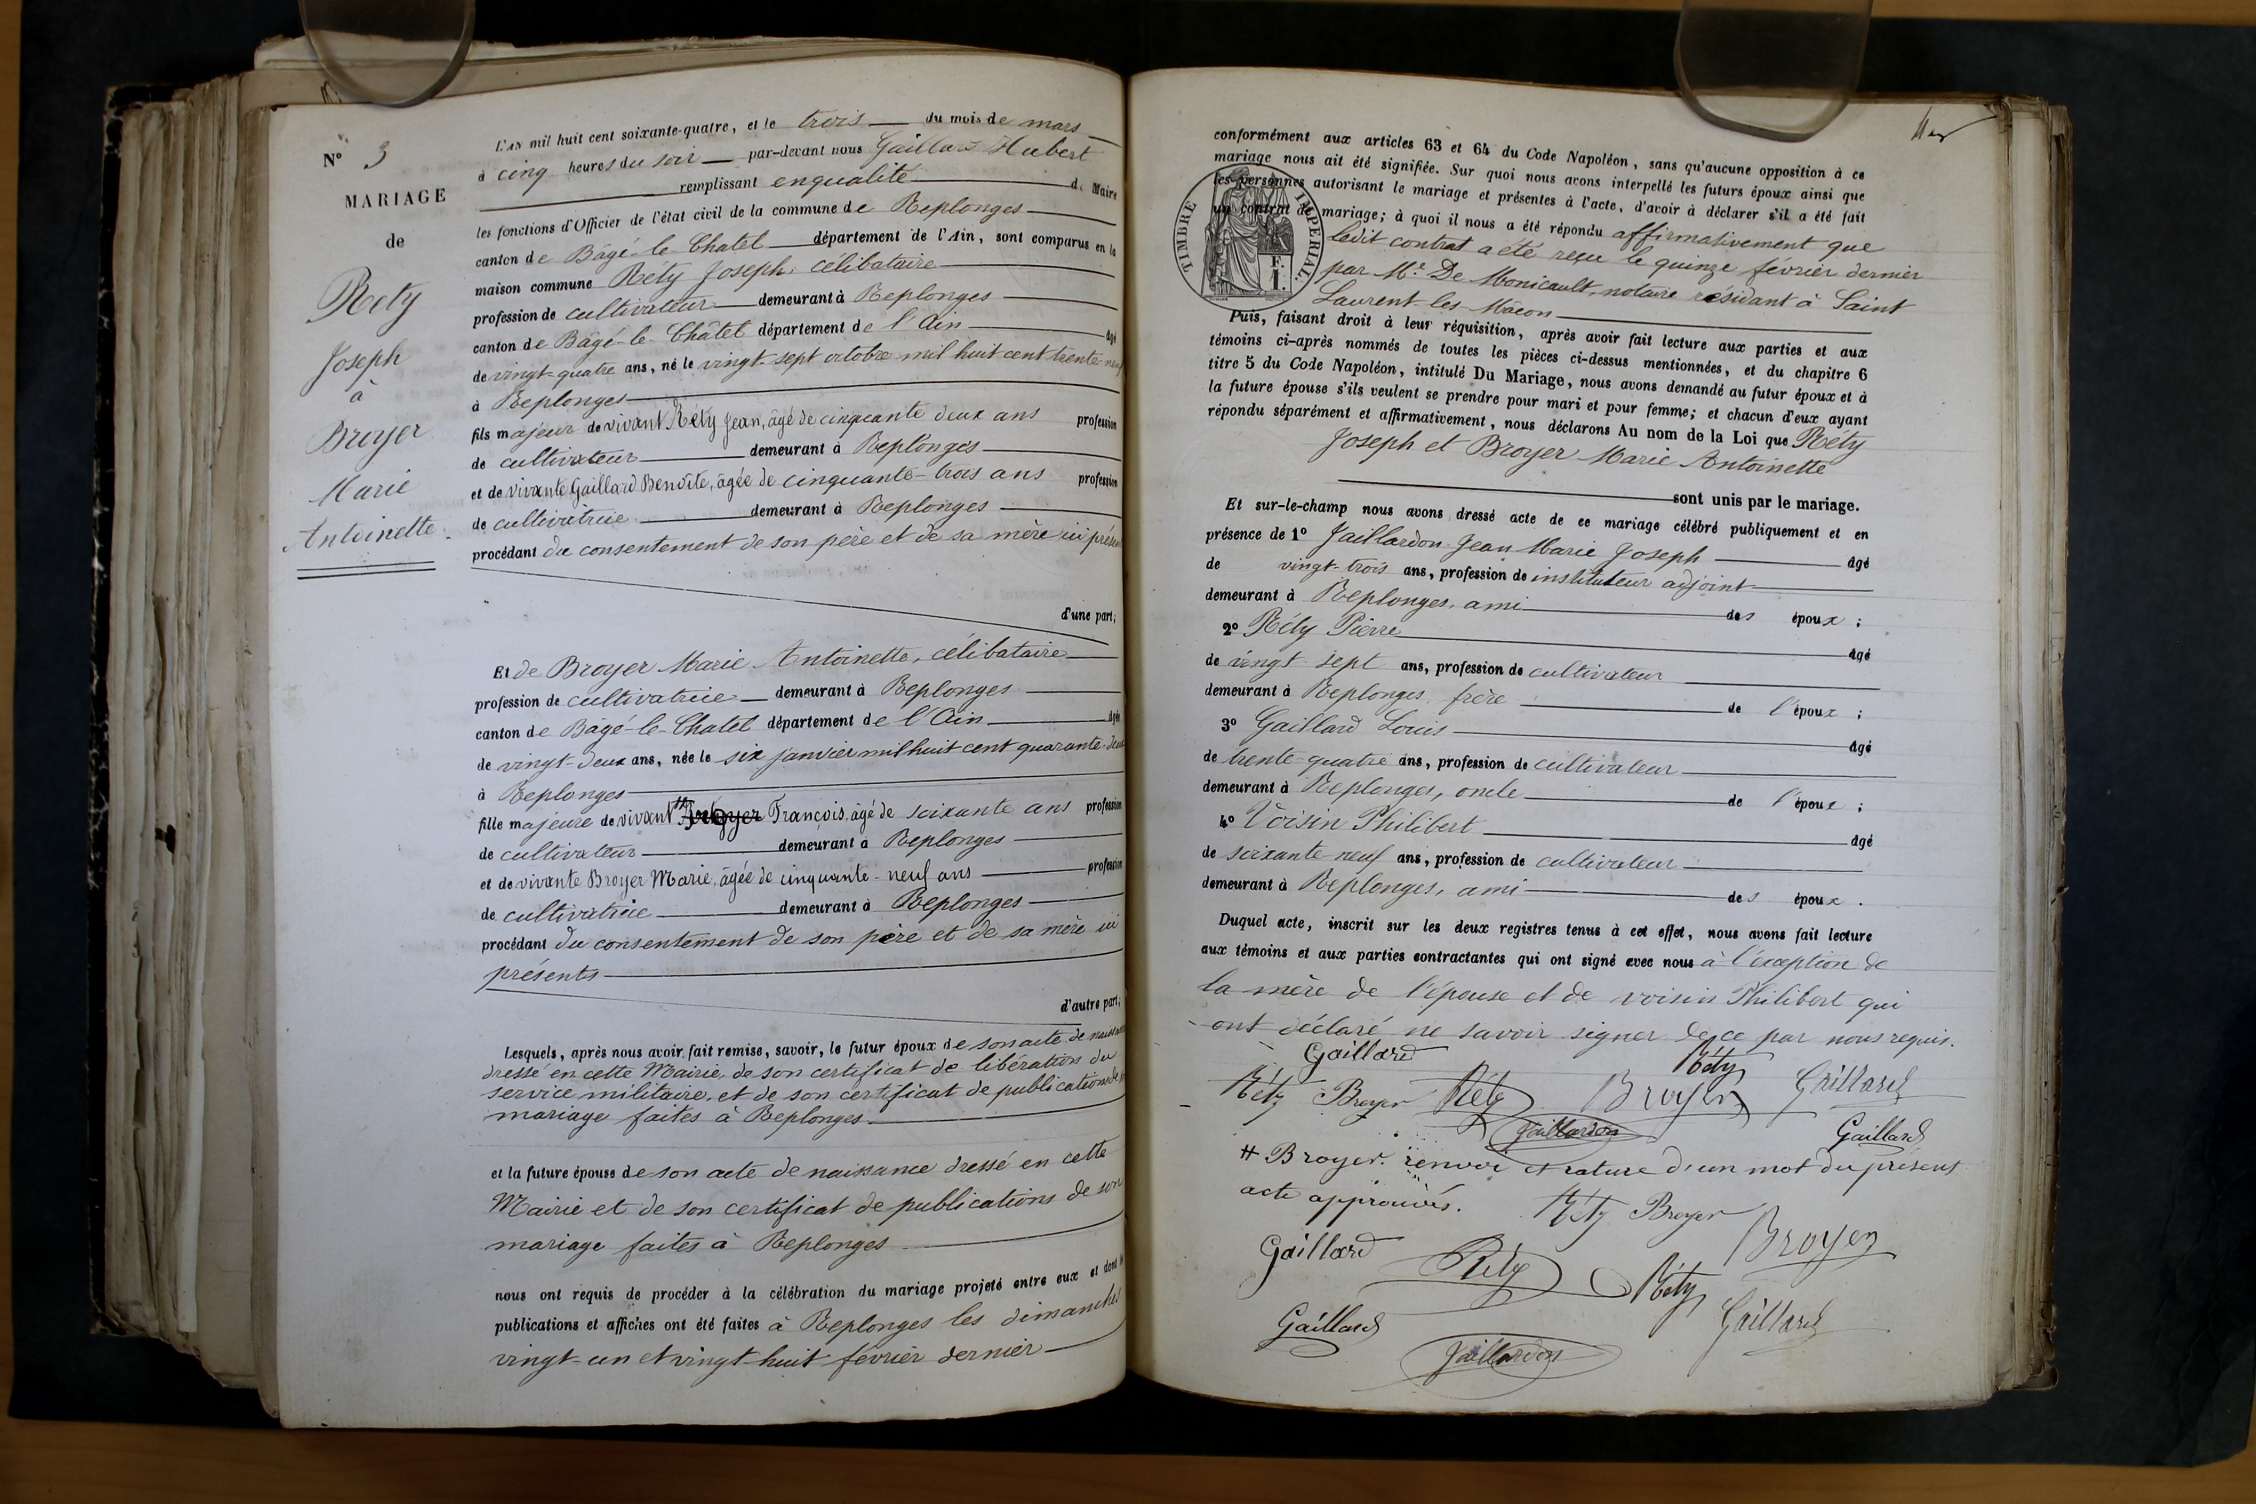 N° 3
MARIAGE
de
Réty
Joseph
à
Broyer
Marie
Antoinette
L'AN mil huit cent soixante-quatre, et le trois du mois de mars
à cinq heures du soir par-devant nous Gaillard Hubert
remplissant en qualité de Maire
les fonctions d'Officier de l'état civil de la commune de Replonges
canton de Bâgé-le-Chatel département de l'Ain, sont comparus en la
maison commune Réty Joseph, célibataire
profession de cultivateur demeurant à Replonges
canton de Bâgé-le-Châtel département de l'Ain âgé
de vingt-quatre ans, né le vingt-sept octobre mil huit cent trente-neuf
à Replonges
fils majeur de vivant Réty Jean, âgé de cinquante deux ans profession
de cultivateur demeurant à Replonges
et de vivante Gaillard Benoîte, âgée de cinquante-trois ans profession
de cultivatrice demeurant à Replonges
procédant du consentement de son père et de sa mère ici présents
d'une part;
Et de Broyer Marie Antoinette, célibataire
profession de cultivatrice demeurant à Replonges
canton de Bâgé-le-Chatel département de l'Ain âgée
de vingt-deux ans, née le six janvier mil huit cent quarante-deux
à Replonges
fille majeure de vivant # François, âgé de soixante ans profession
de cultivateur demeurant à Replonges
et de vivante Broyer Marie, âgée de cinquante-neuf ans profession
de cultivatrice demeurant à Replonges
procédant du consentement de son père et de sa mère ici
présents
d'autre part;
Lesquels, après nous avoir fait remise, savoir, le futur époux de son acte de naissance
dressé en cette Mairie, de son certificat de libération du
service militaire, et de son certificat de publications de
mariage faites à Replonges
et la future épouse de son acte de naissance dressé en cette
Mairie et de son certificat de publications de son
mariage faites à Replonges
nous ont requis de procéder à la célébration du mariage projeté entre eux et dont les
publications et affiches ont été faites à Replonges les dimanches
vingt-un et vingt-huit février dernier
conformément aux articles 63 et 64 du Code Napoléon, sans qu'aucune opposition à ce
mariage nous ait été signifiée. Sur quoi nous avons interpellé les futurs époux ainsi que
les personnes autorisant le mariage et présentes à l'acte, d'avoir à déclarer s'il a été fait
un contrat de mariage; à quoi il nous a été répondu affirmativement que
TIMBRE IMPERIAL.
1 F.
ledit contrat a été reçu le quinze février dernier
par Me De Monicault, notaire résidant à Saint
Laurent-les-Mâcon
Puis, faisant droit à leur réquisition, après avoir fait lecture aux parties et aux
témoins ci-après nommés de toutes les pièces ci-dessus mentionnées, et du chapitre 6
titre 5 du Code Napoléon, intitulé Du Mariage, nous avons demandé au futur époux et à
la future épouse s'ils veulent se prendre pour mari et pour femme; et chacun d'eux ayant
répondu séparément et affirmativement, nous déclarons Au nom de la Loi que Réty
Joseph et Broyer Marie Antoinette
sont unis par le mariage.
Et sur-le-champ nous avons dressé acte de ce mariage célébré publiquement et en
présence de 1° Jaillardon Jean Marie Joseph âgé
de vingt-trois ans, profession de instituteur adjoint
demeurant à Replonges, ami des époux;
2° Réty Pierre âgé
de vingt-sept ans, profession de cultivateur
demeurant à Replonges, frère de l'époux;
3° Gaillard Louis âgé
de trente-quatre ans, profession de cultivateur
demeurant à Replonges, oncle de l'époux;
4° Voisin Philibert âgé
de soixante-neuf ans, profession de cultivateur
demeurant à Replonges, ami des époux.
Duquel acte, inscrit sur les deux registres tenus à cet effet, nous avons fait lecture
aux témoins et aux parties contractantes qui ont signé avec nous à l'exception de
la mère de l'épouse et de voisin Philibert qui
ont déclaré ne savoir signer de ce par nous requis.
Gaillard Réty
Réty Broyer Réty Broyer Gaillard
Jaillardon Gaillard
# Broyer. renvoi et rature d'un mot du présent
acte approuvés. Réty Broyer
Gaillard Réty Réty Broyer
Gaillard Jaillardon Gaillard